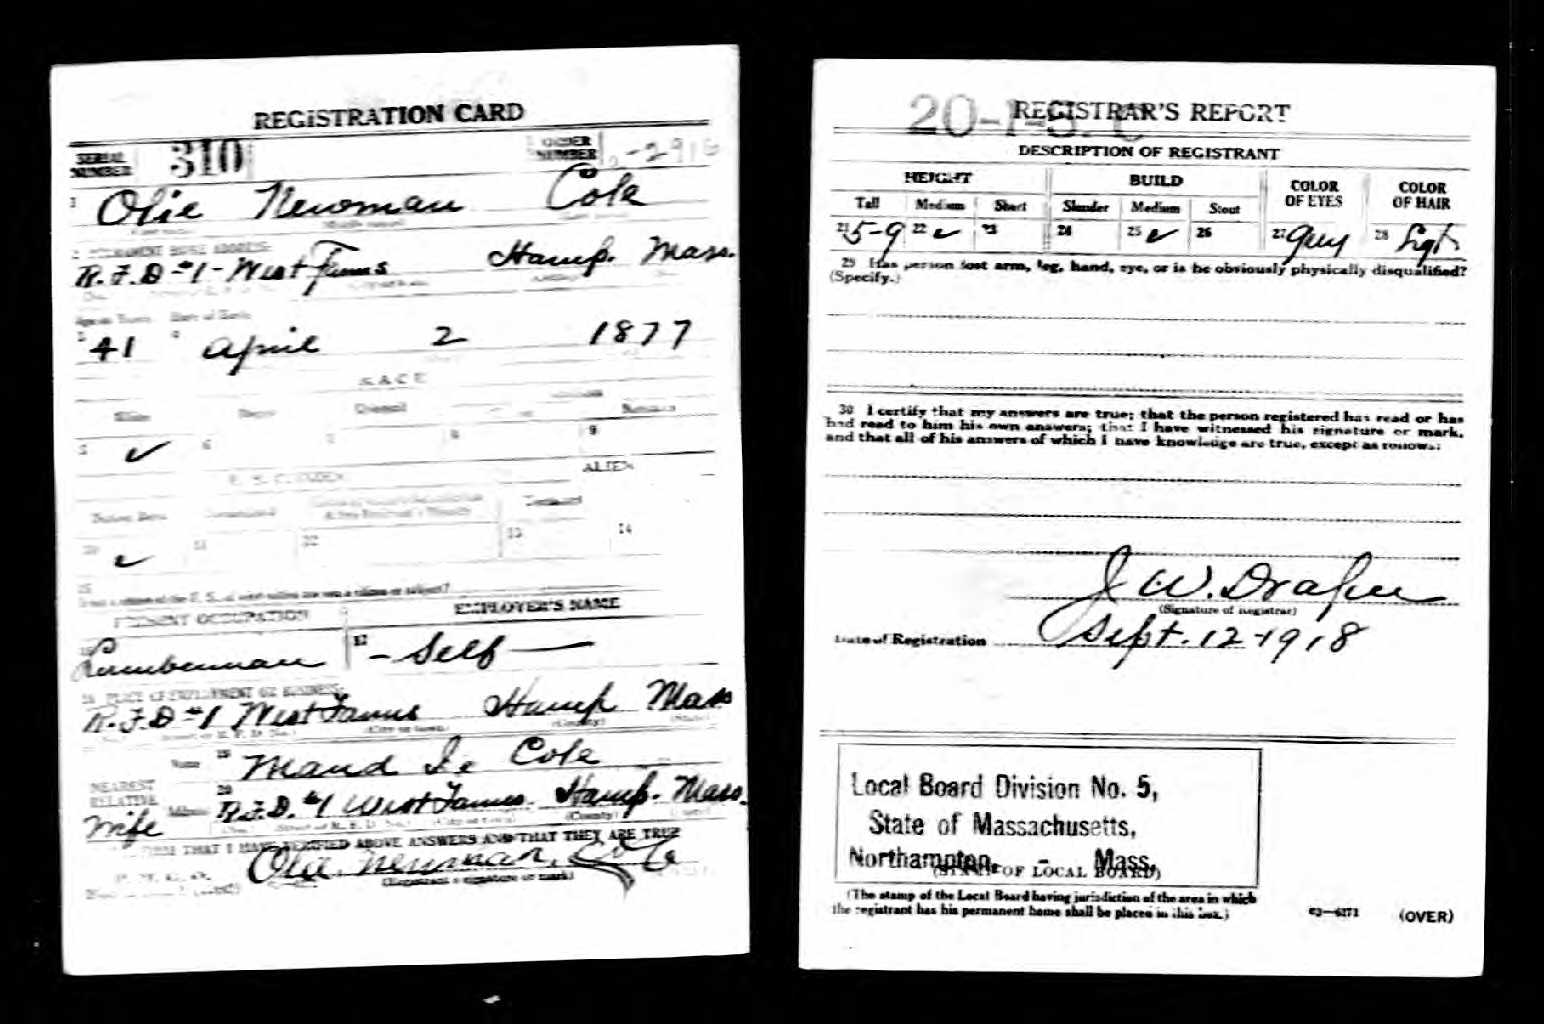 REGISTRATION CARD
SERIAL NUMBER 310 ORDER NUMBER
1 Olie Newman Cole
2 PERMANENT HOME ADDRESS:
R.F.D #1 - West Farms Hamp. Mass.
Age in Years Date of Birth
3 41 4 April 2 1877
RACE
White Negro Oriental
5 ✓ 6 7 8 9
U. S. CITIZEN ALIEN
Native Born Naturalized Declarant
10 ✓ 11 12 13 14
15
If not a citizen of the U. S., of what nation are you a citizen or subject?
PRESENT OCCUPATION EMPLOYER'S NAME
16 Lumberman 17 - Self -
18 PLACE OF EMPLOYMENT OR BUSINESS:
R.F.D #1 West Farms Hamp Mass
(City or town) (County) (State)
Name 19 Maud I. Cole
NEAREST RELATIVE Address 20 R.F.D. #1 West Farms. Hamp. Mass.
Wife (No.) (Street or R. F. D. No.) (City or town) (County) (State)
THAT I HAVE VERIFIED ABOVE ANSWERS AND THAT THEY ARE TRUE
Olie Newman Cole
(Registrant's signature or mark)
REGISTRAR'S REPORT
DESCRIPTION OF REGISTRANT
HEIGHT BUILD COLOR OF EYES COLOR OF HAIR
Tall Medium Short Slender Medium Stout
21 5-9 22 ✓ 23 24 25 ✓ 26 27 Grey 28 Ligt
29 Has person lost arm, leg, hand, eye, or is he obviously physically disqualified?
(Specify.)
30 I certify that my answers are true; that the person registered has read or has
had read to him his own answers; that I have witnessed his signature or mark,
and that all of his answers of which I have knowledge are true, except as follows:
J W. Draper
(Signature of Registrar)
Date of Registration Sept. 12-1918
Local Board Division No. 5,
State of Massachusetts,
Northampton, - Mass.
(STAMP OF LOCAL BOARD)
(The stamp of the Local Board having jurisdiction of the area in which
the registrant has his permanent home shall be placed in this box.)
03—6171 (OVER)